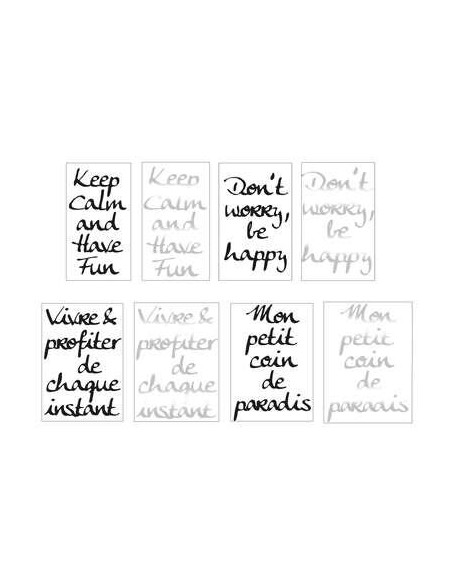 Keep
Calm
and
Have
Fun
Keep
Calm
and
Have
Fun
Don't
worry,
be
happy
Don't
worry,
be
happy
Vivre &
profiter
de
chaque
instant
Vivre &
profiter
de
chaque
instant
Mon
petit
coin
de
paradis
Mon
petit
coin
de
paradis